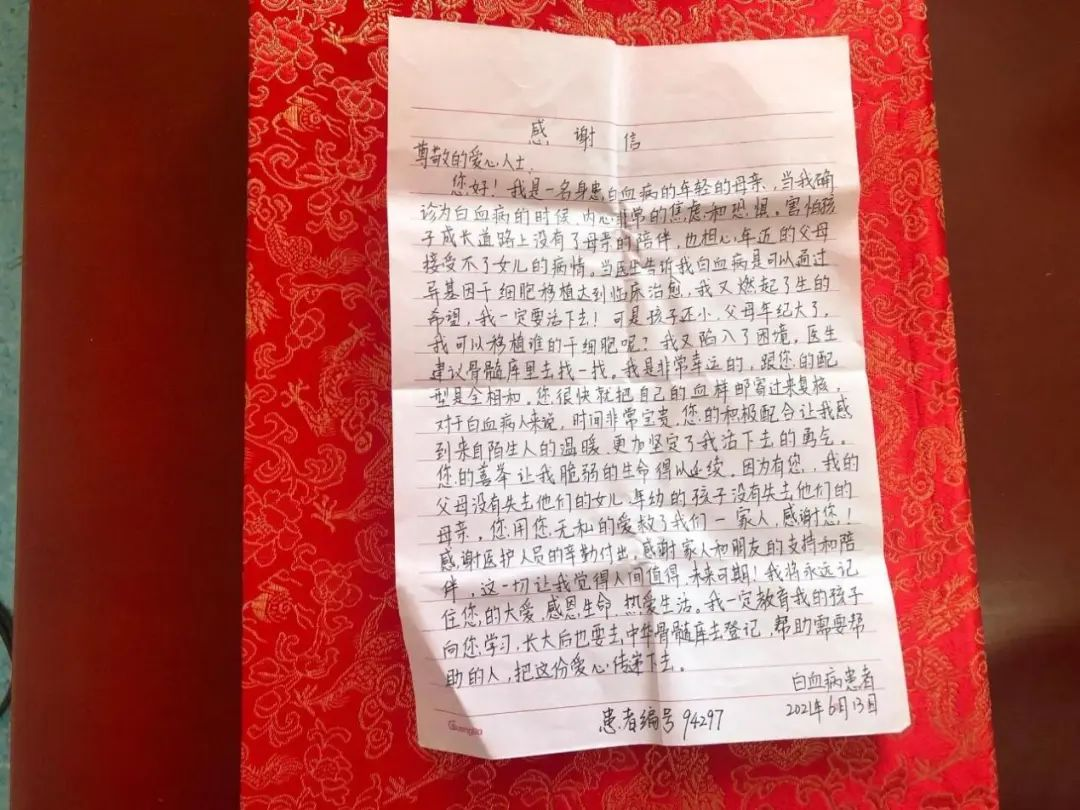 感谢信
尊敬的爱心人士、
您好！我是一名身患白血病的年轻的母亲，当我确
诊为白血病的时候，内心非常的焦虑和恐惧。害怕孩
子成长道路上没有了母亲的陪伴，也担心年迈的父母
接受不了女儿的病情。当医生告诉我白血病是可以通过
异基因干细胞移植达到临床治愈，我又燃起了生的
希望，我一定要活下去！可是孩子还小，父母年纪大了，
我可以移植谁的干细胞呢？我又陷入了困境，医生
建议骨髓库里去找一找。我是非常幸运的，跟您的配
型是全相和。您很快就把自己的血样邮寄过来复核，
对于白血病人来说，时间非常宝贵，您的积极配合让我感
到来自陌生人的温暖，更加坚定了我活下去的勇气。
您的善举让我脆弱的生命得以延续。因为有您，我的
父母没有失去他们的女儿，年幼的孩子没有失去他们的
母亲。您用您无私的爱救了我们一家人，感谢您！
感谢医护人员的辛勤付出，感谢家人和朋友的支持和陪
伴，这一切让我觉得人间值得，未来可期！我将永远记
住您的大爱，感恩生命，热爱生活。我一定教育我的孩子
向您学习，长大后也要去中华骨髓库去登记，帮助需要帮
助的人，把这份爱心传递下去。
白血病患者
2021年6月13日
患者编号94297